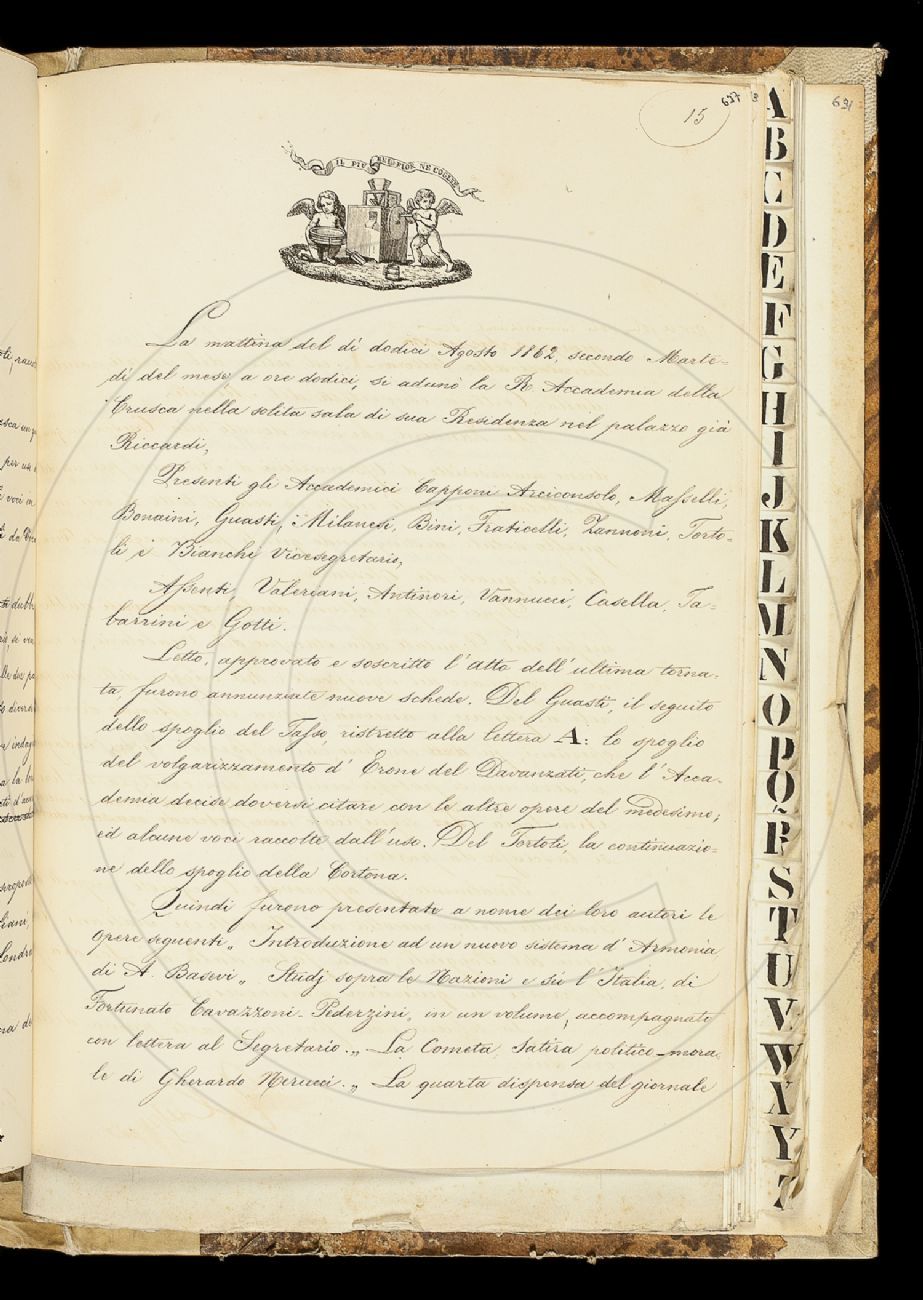 637
15
631
IL PIÙ BEL FIOR NE COGLIE
La mattina del dì dodici Agosto 1862, secondo Marte=
dì del mese, a ore dodici, si adunò la R. Accademia della
Crusca nella solita sala di sua Residenza nel palazzo già
Riccardi.
Presenti gli Accademici Capponi Arciconsolo, Masselli,
Bonaini, Guasti, Milanesi, Bini, Fraticelli, Zannoni, Torto=
li e Bianchi Vicesegretario,
Assenti, Valeriani, Antinori, Vannucci, Casella, Ta=
barrini e Gotti.
Letto, approvato e soscritto l'atto dell'ultima torna=
ta, furono annunziate nuove schede. Del Guasti, il seguito
dello spoglio del Tasso, ristretto alla lettera A: lo spoglio
del volgarizzamento d'Erone del Davanzati, che l'Acca=
demia decise doversi citare con le altre opere del medesimo;
ed alcune voci raccolte dall'uso. Del Tortoli, la continuazio=
ne dello spoglio della Cortona.
Quindi furono presentate a nome dei loro autori le
Opere seguenti „ Introduzione ad un nuovo sistema d'Armonia
di A. Basevi „ Studj sopra le Nazioni e sù l'Italia, di
Fortunato Cavazzoni-Pederzini, in un volume, accompagnato
con lettera al Segretario. „ La Cometa, Satira politico-mora=
le di Gherardo Nerucci. „ La quarta dispensa del giornale
A
B
C
D
E
F
G
H
I
J
K
L
M
N
O
P
Q
R
S
T
U
V
W
X
Y
Z